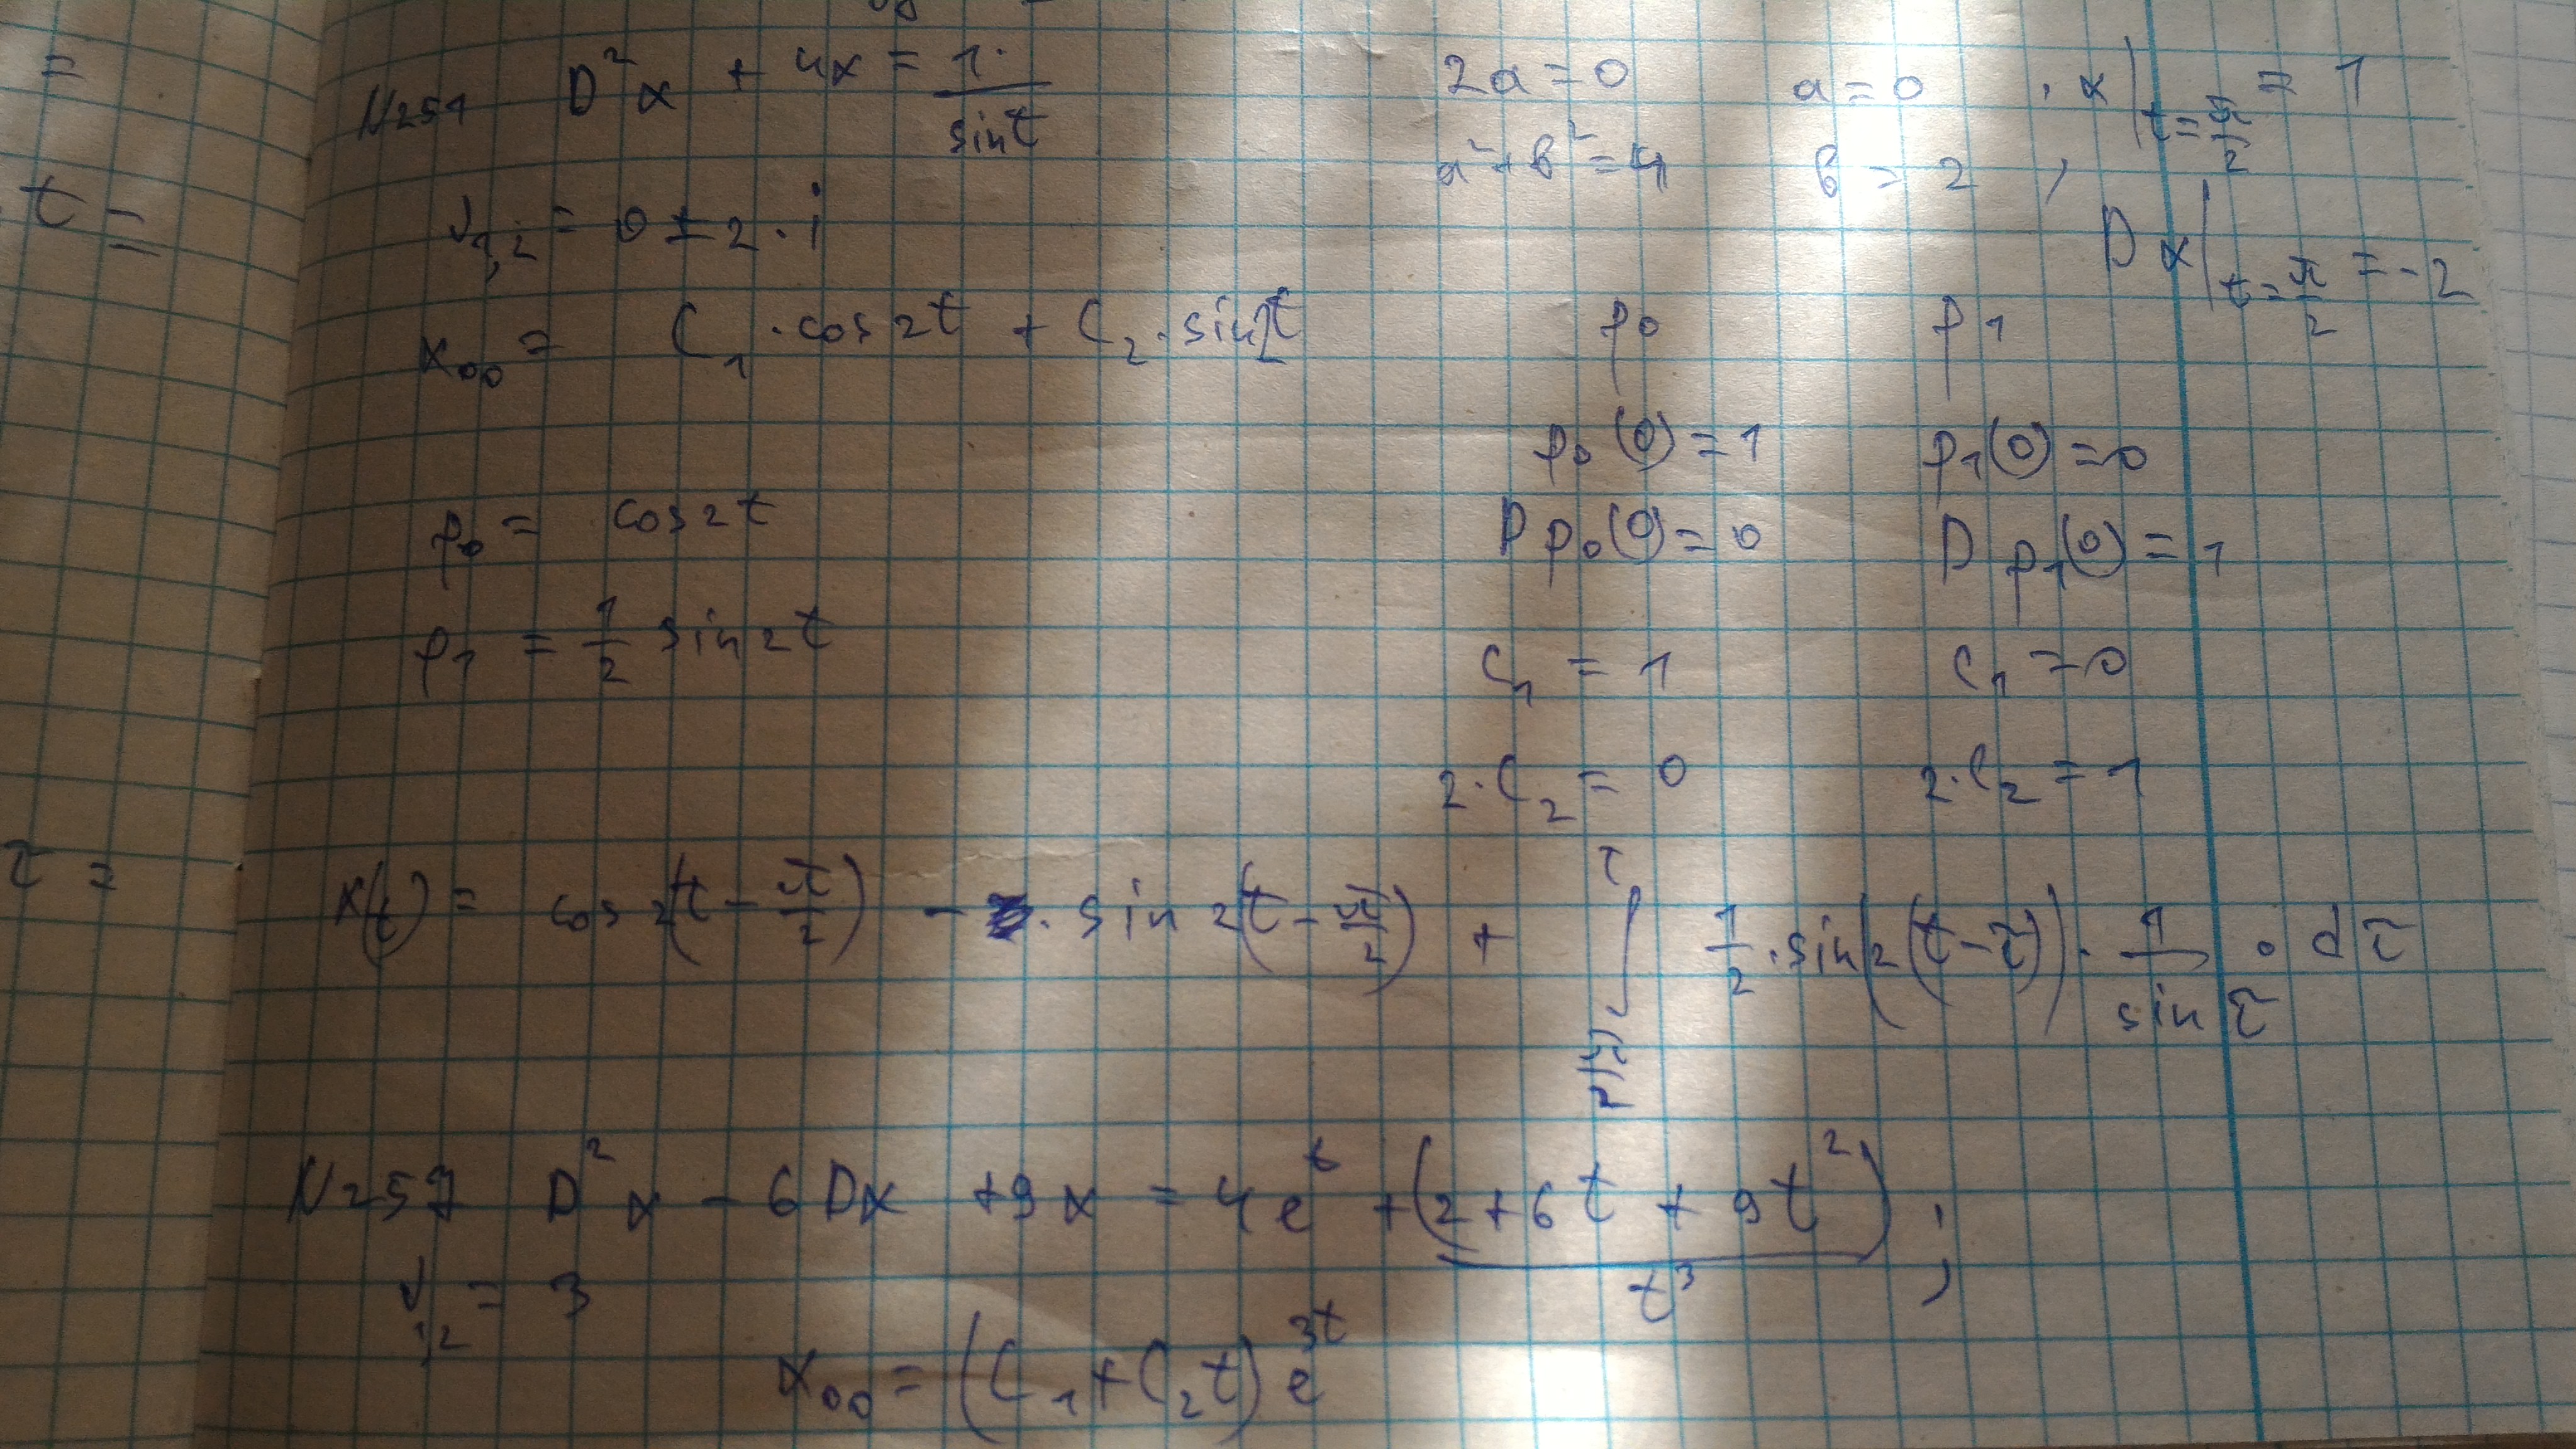 =
t =
τ =
N251 D²x + 4x = 1/sint 2a=0 a=0 , x|t=π/2 = 1
a²+b²=4 b=2 ,
ν1,2 = 0 ± 2·i Dx|t=π/2 = -2
x00 = C1·cos2t + C2·sin2t p0 p1
p0(0)=1 p1(0)=0
p0 = cos2t Dp0(0)=0 Dp1(0)=1
p1 = 1/2 sin2t C1 = 1 C1 = 0
2·C2 = 0 2·C2 = 1
x(t) = cos2(t-π/2) - · sin2(t-π/2) + ∫π/2 τ 1/2·sin(2(t-τ))·1/sinτ · dτ
N257 D²x - 6Dx + 9x = 4e^t + (2+6t+9t²)/t³ ;
ν1,2 = 3
x00 = (C1+C2t)e^3t